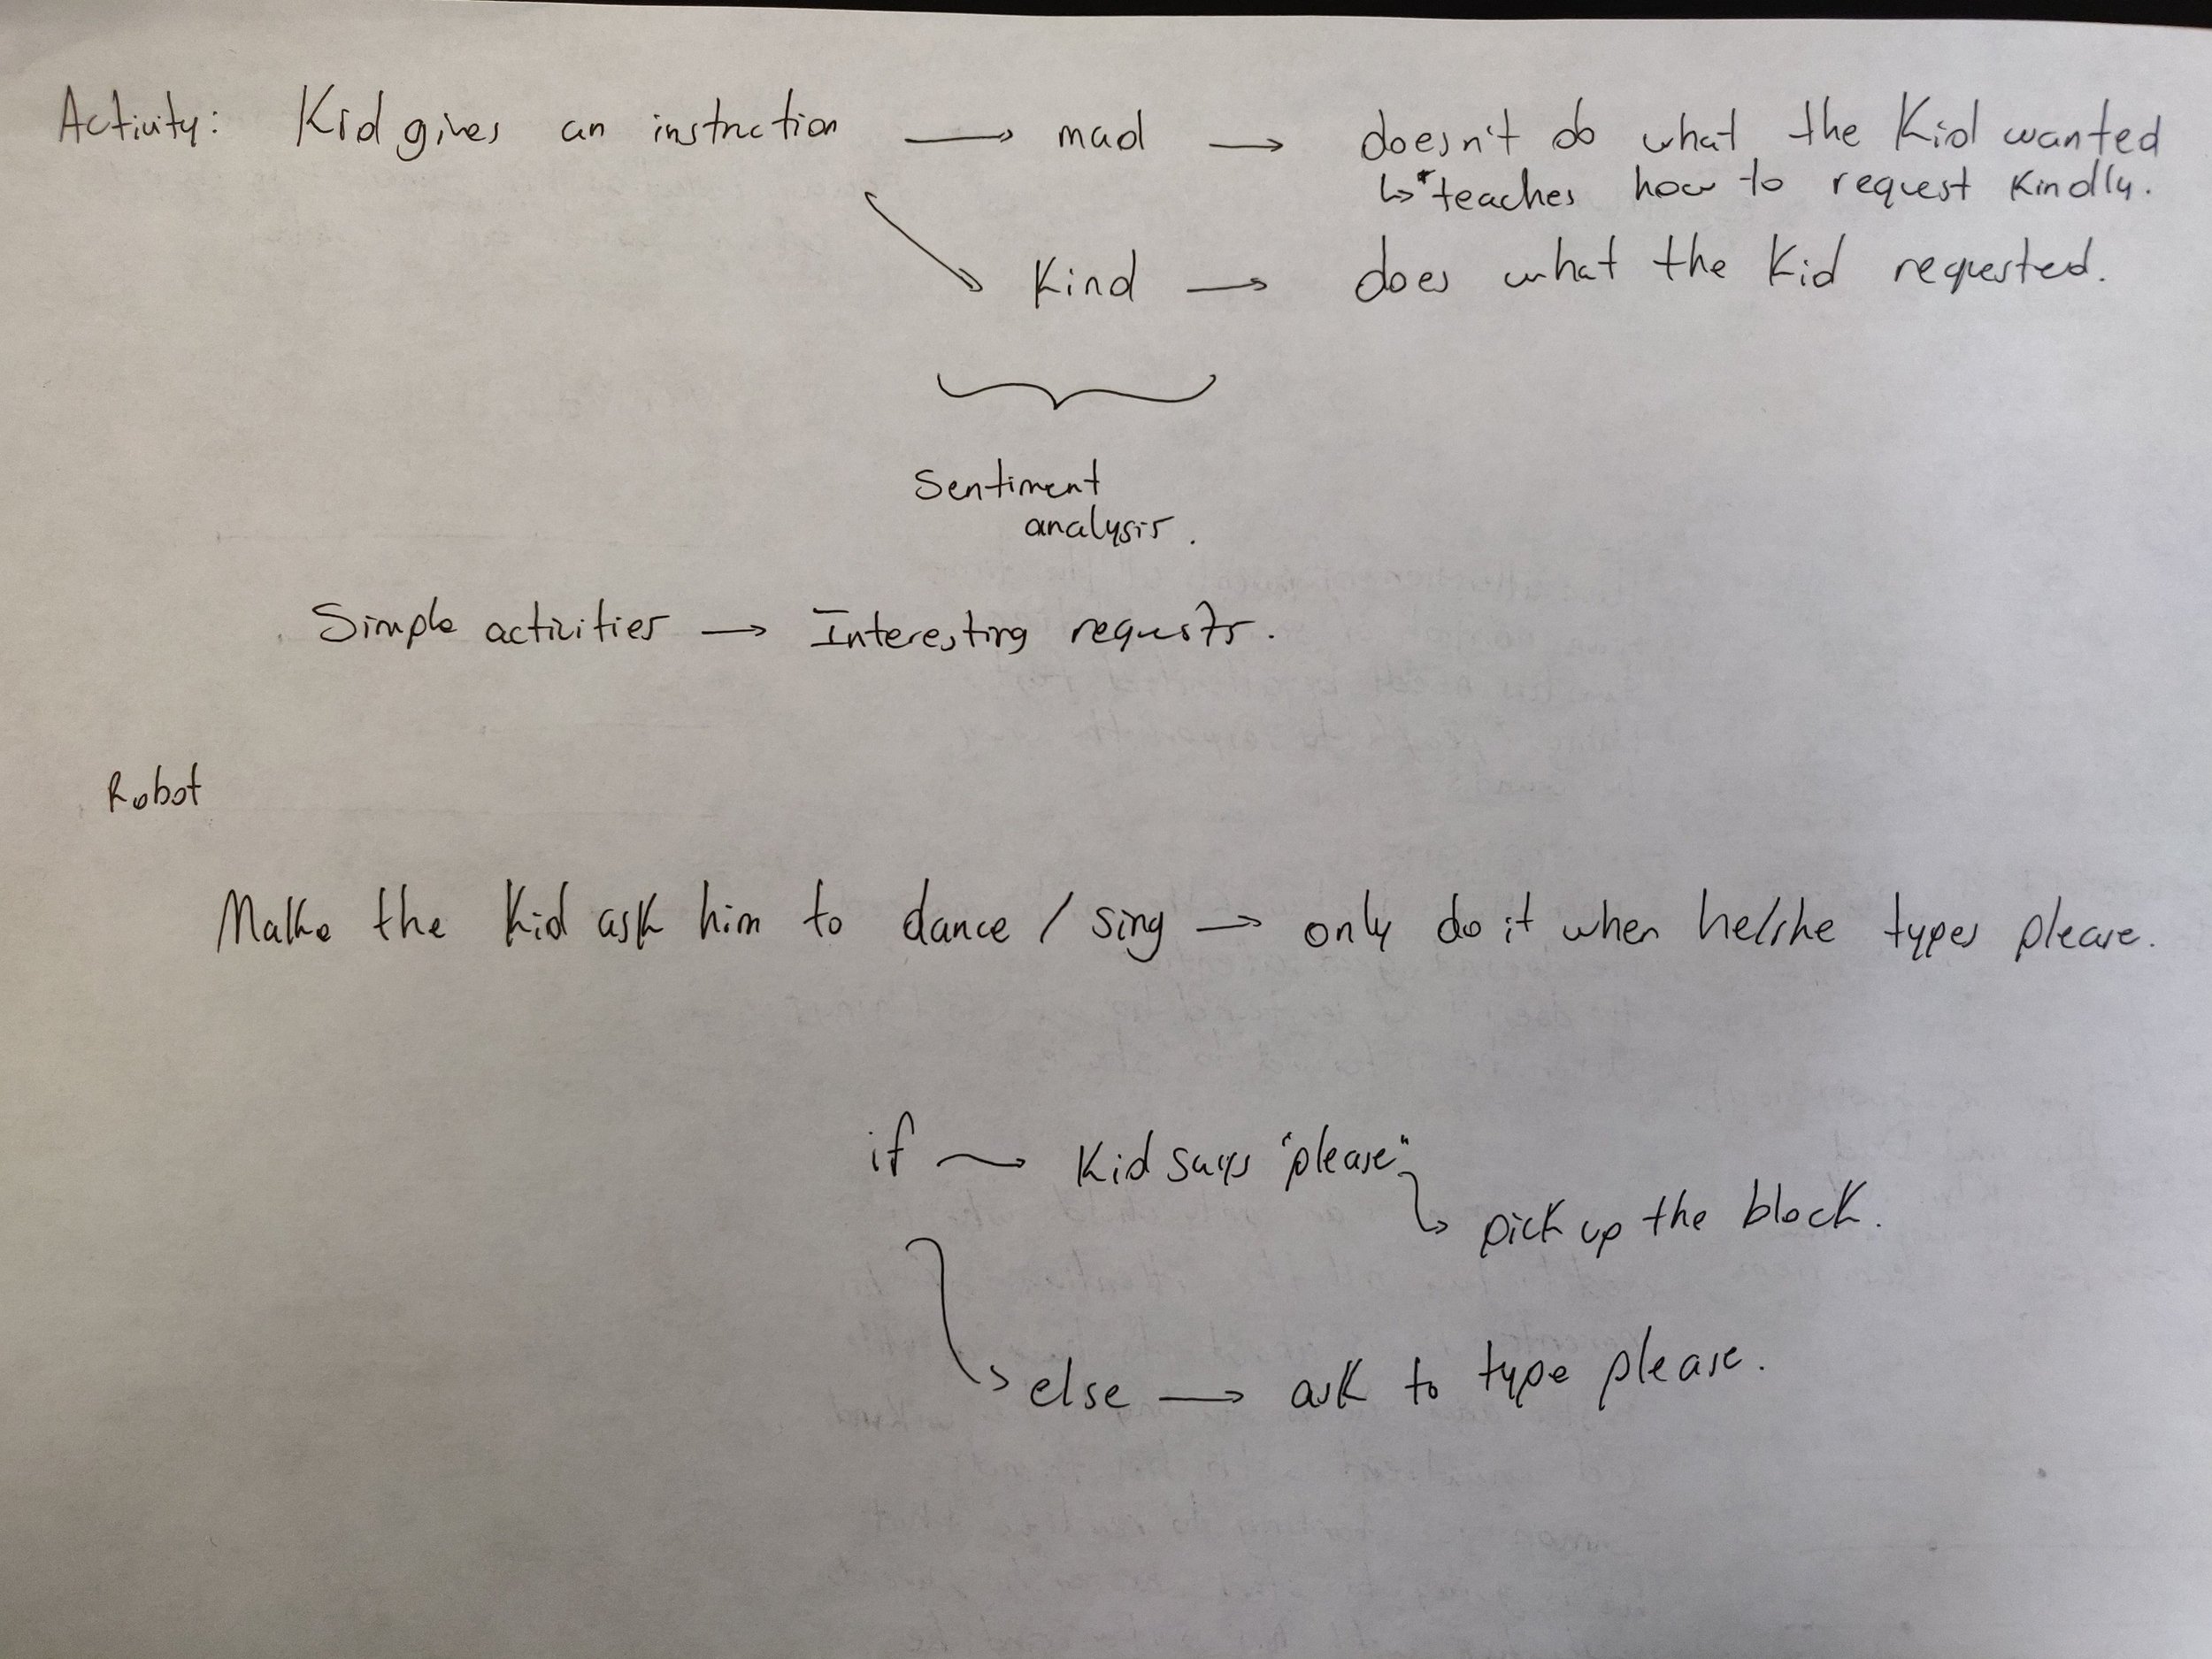 Activity: Kid gives an instruction → mad → doesn't do what the Kid wanted
↳ *teaches how to request kindly.
Kind → does what the Kid requested.
Sentiment
analysis.
Simple activities → Interesting requests.
Robot
Make the Kid ask him to dance / sing → only do it when he/she types please.
if → Kid says "please"
↳ pick up the block.
↳ else → ask to type please.